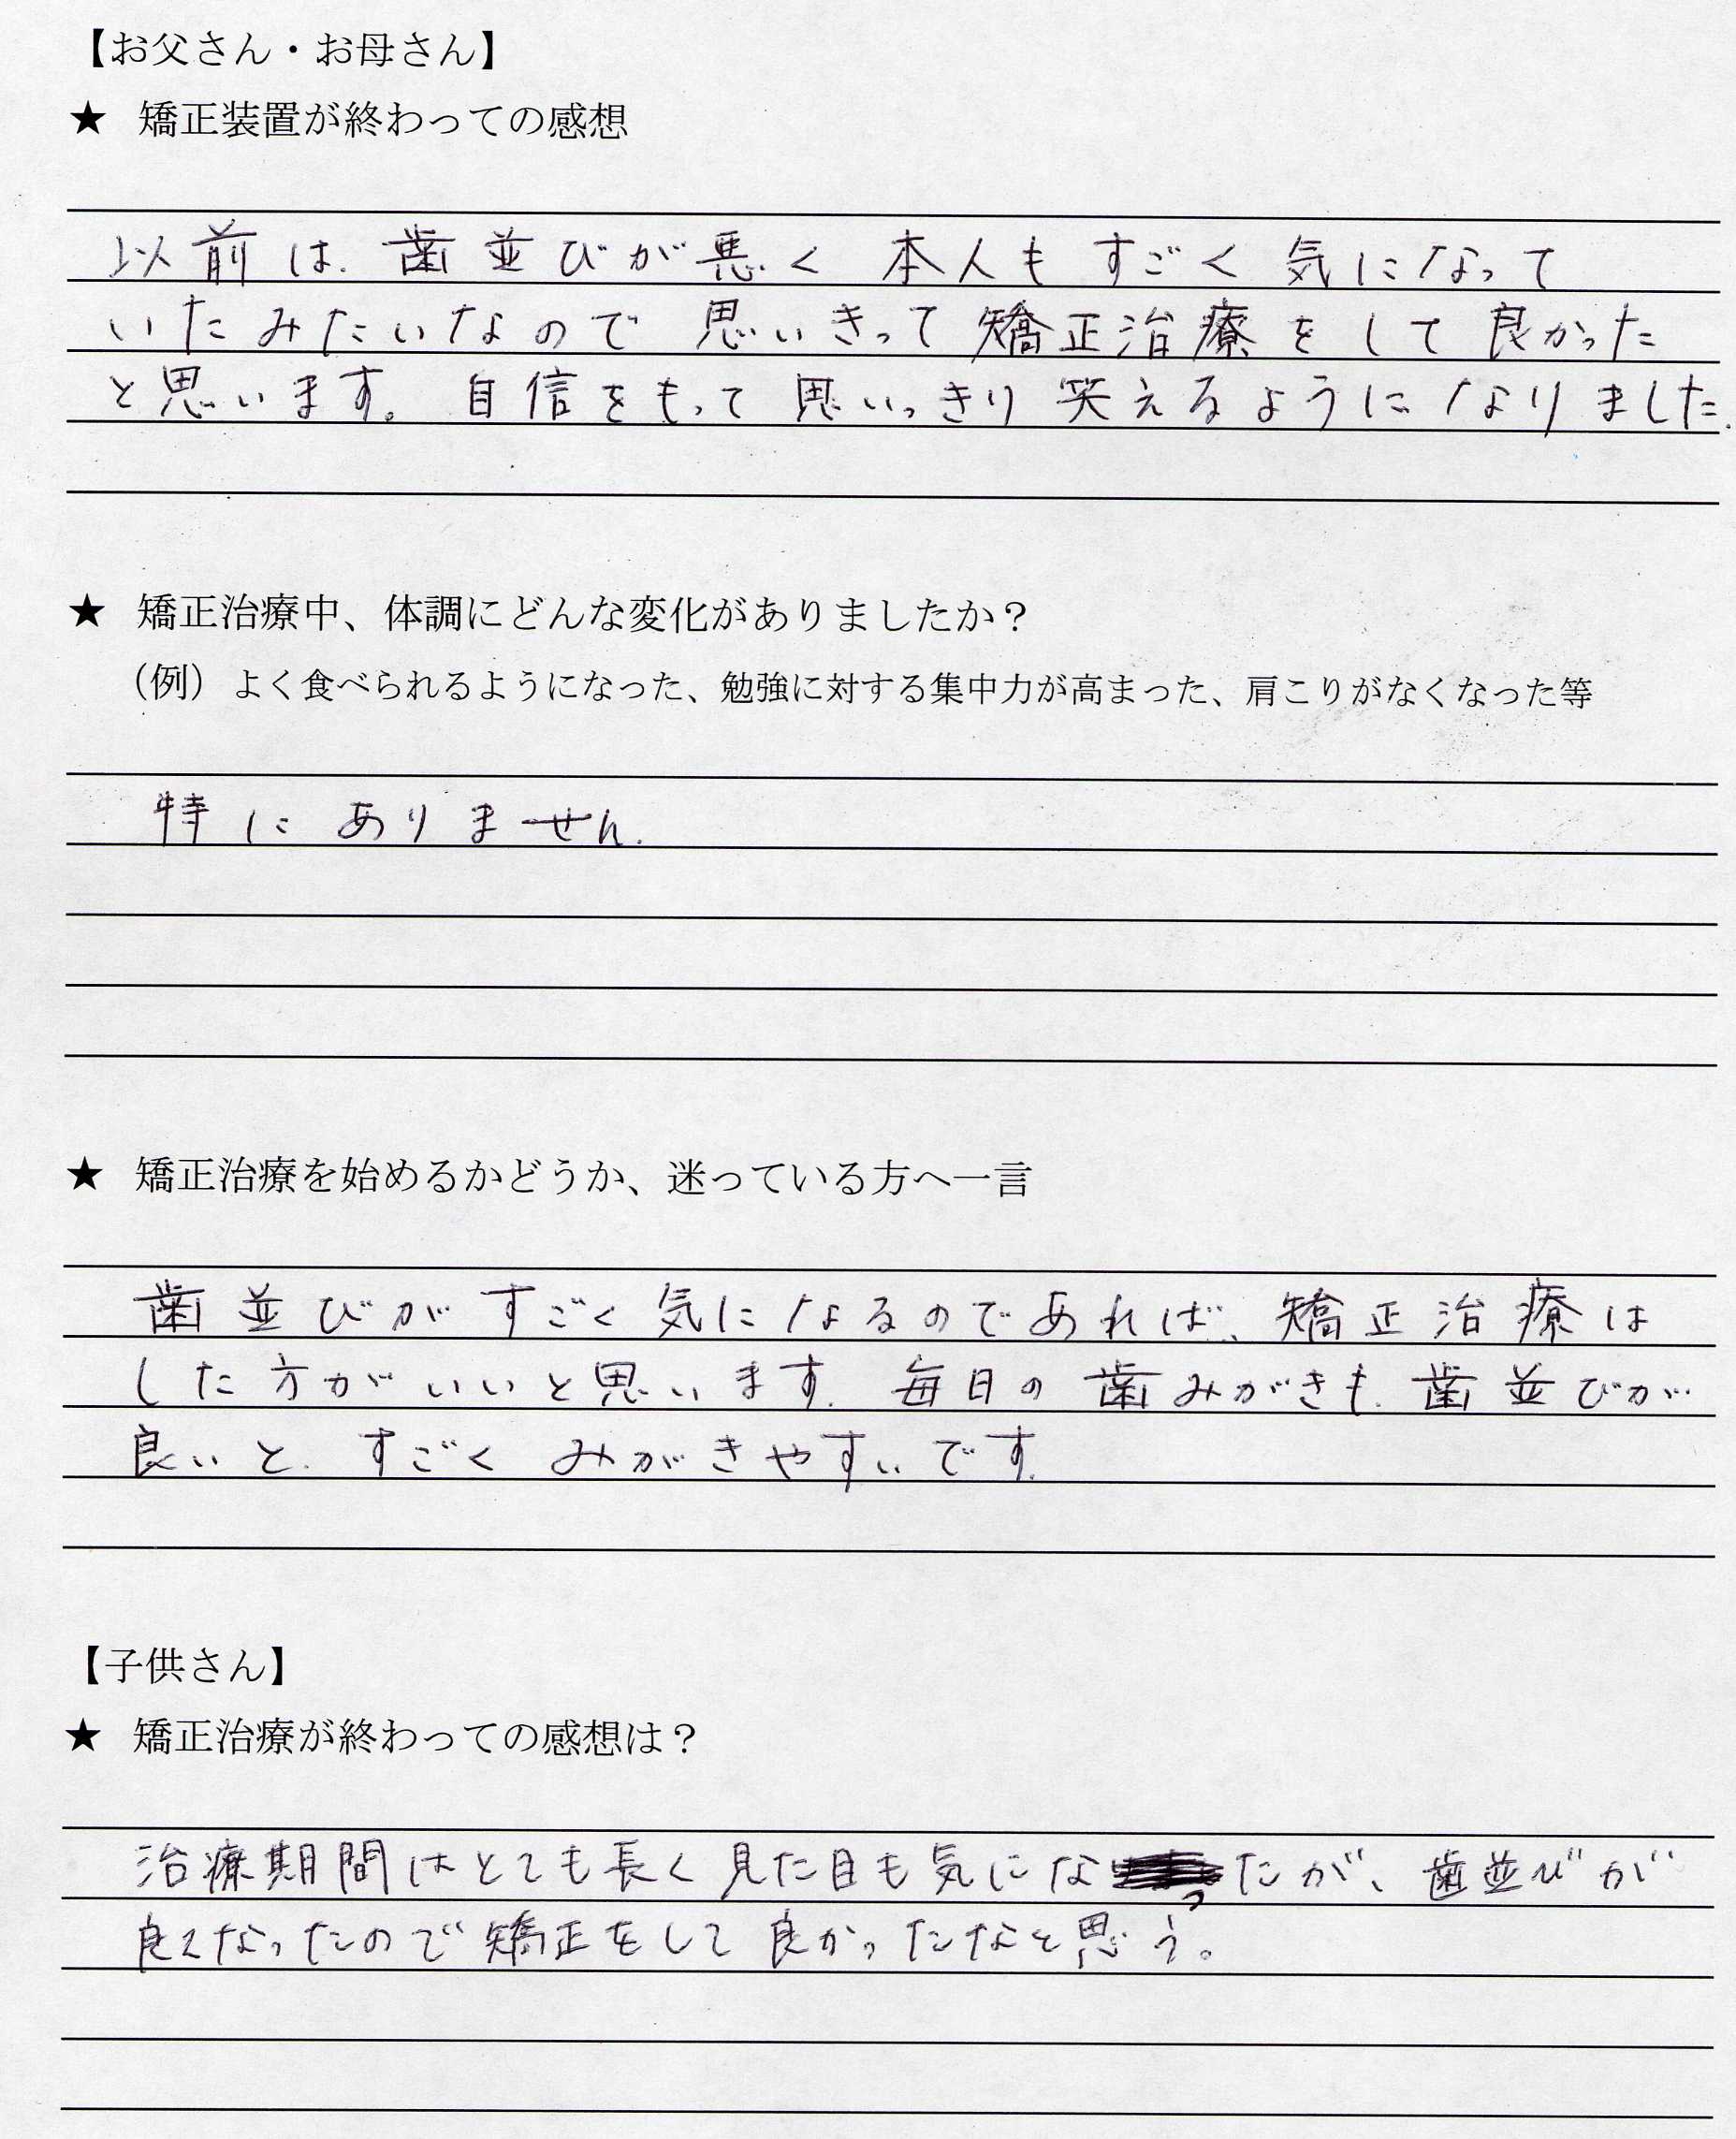 【お父さん・お母さん】
★ 矯正装置が終わっての感想
以前は、歯並びが悪く 本人も すごく 気になって
いたみたいなので 思いきって 矯正治療をして良かった
と思います。 自信をもって 思いっきり 笑えるようになりました.
★ 矯正治療中、体調にどんな変化がありましたか？
（例）よく食べられるようになった、勉強に対する集中力が高まった、肩こりがなくなった等
特に ありません.
★ 矯正治療を始めるかどうか、迷っている方へ一言
歯並びが すごく 気になるのであれば、矯正治療は
した方が いいと思います. 毎日の 歯みがきも、歯並びが
良いと、すごく みがきやすいです.
【子供さん】
★ 矯正治療が終わっての感想は？
治療期間はとても長く見た目も気になったが、歯並びが
良くなったので矯正をして良かったなと思う。